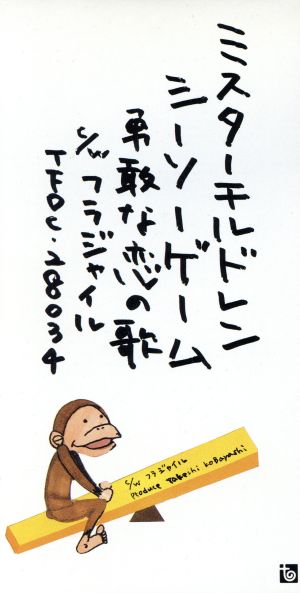 ミスターチルドレン
シーソーゲーム
勇敢な恋の歌
c/w フラジャイル
TFDC-28034
c/w フラジャイル
Produce Takeshi Kobayashi